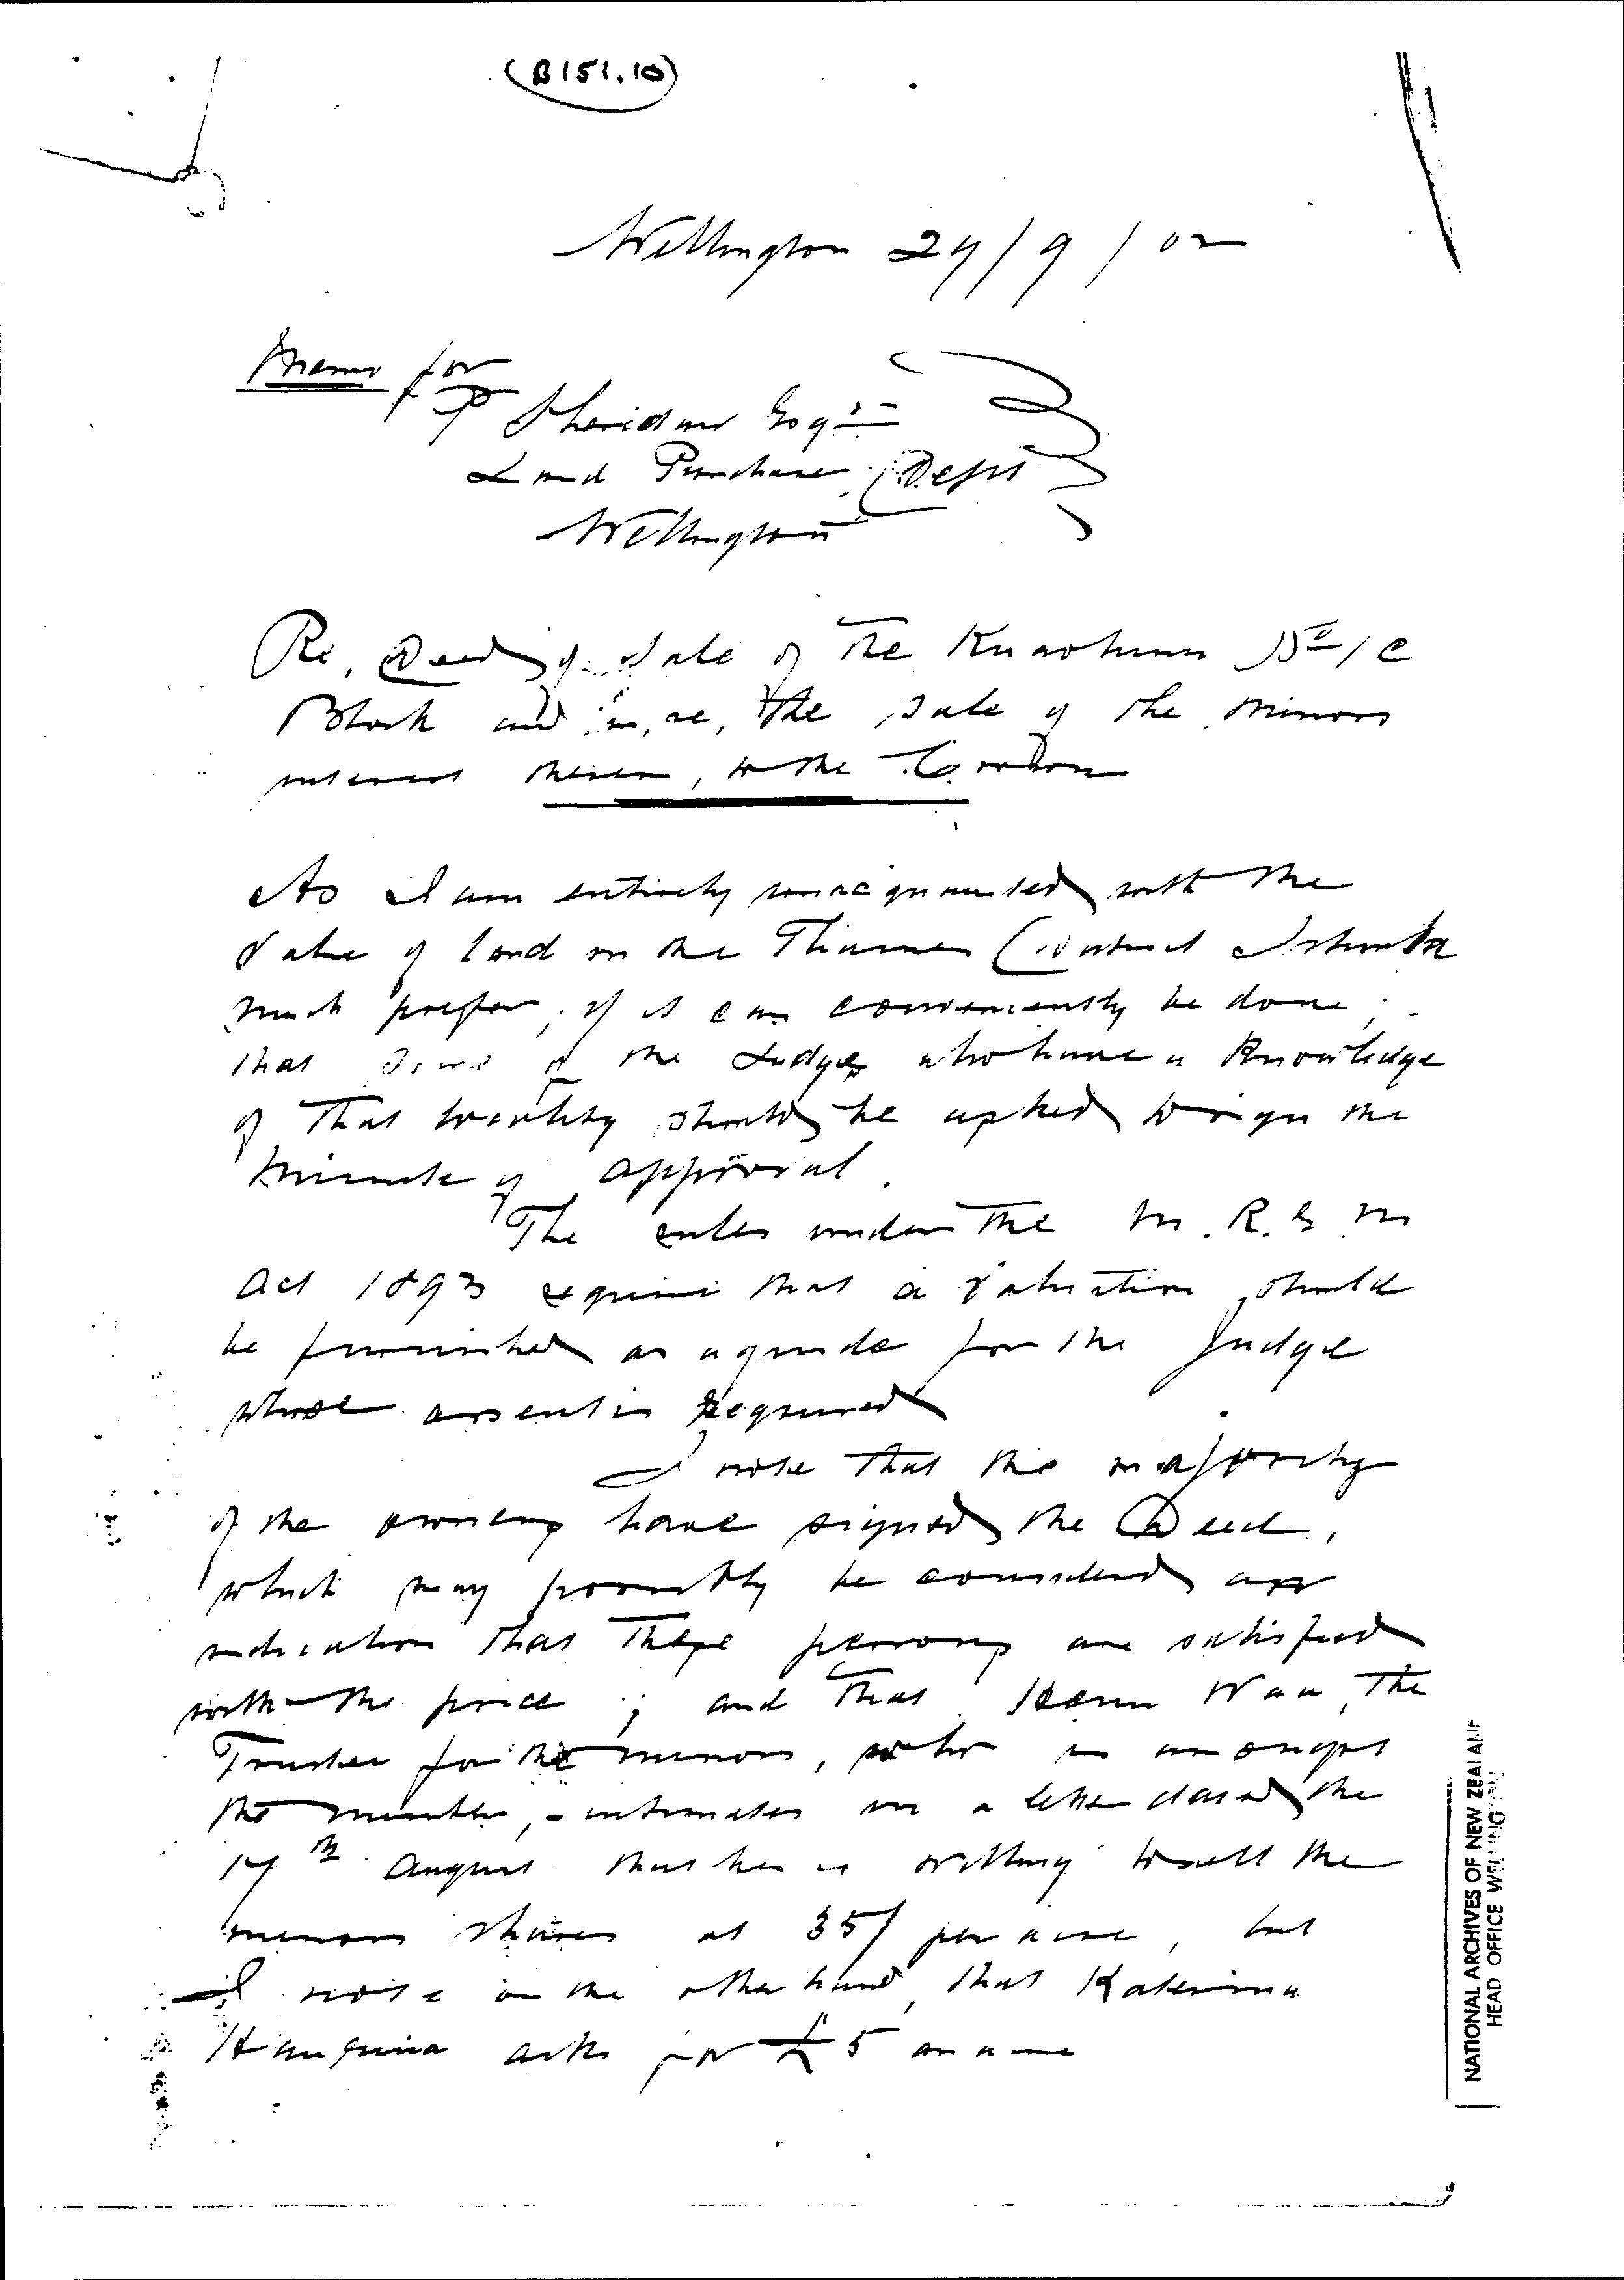 (B151.10)
Wellington 24/9/02
Memo for
P Sheridan Esqre
Land Purchase Dept
Wellington
Re, Deed of Sale of the Kuaotunu No 1C
Block and in, re, the Sale of the minors
interest therein, to the Crown
As I am entirely unacquainted with the
value of land in the Thames District I should
much prefer, if it can conveniently be done,
that some of the Judges who have a knowledge
of that locality should be asked to sign the
minute of approval.
The rules under the M.R.E.M
Act 1893 require that a valuation should
be furnished as a guide for the Judge
whose assent is required
I note that the majority
of the owners have signed the Deed,
which may possibly be considered an
indication that these persons are satisfied
with the price; and that Waa, the
Trustee for the minors, who is amongst
the number, intimates in a letter dated the
17th August that he is willing to sell the
minors shares at 35/ per acre, but
I note on the other hand, that Katerina
Hauruia asks for £5 an acre
NATIONAL ARCHIVES OF NEW ZEALAND
HEAD OFFICE WELLINGTON